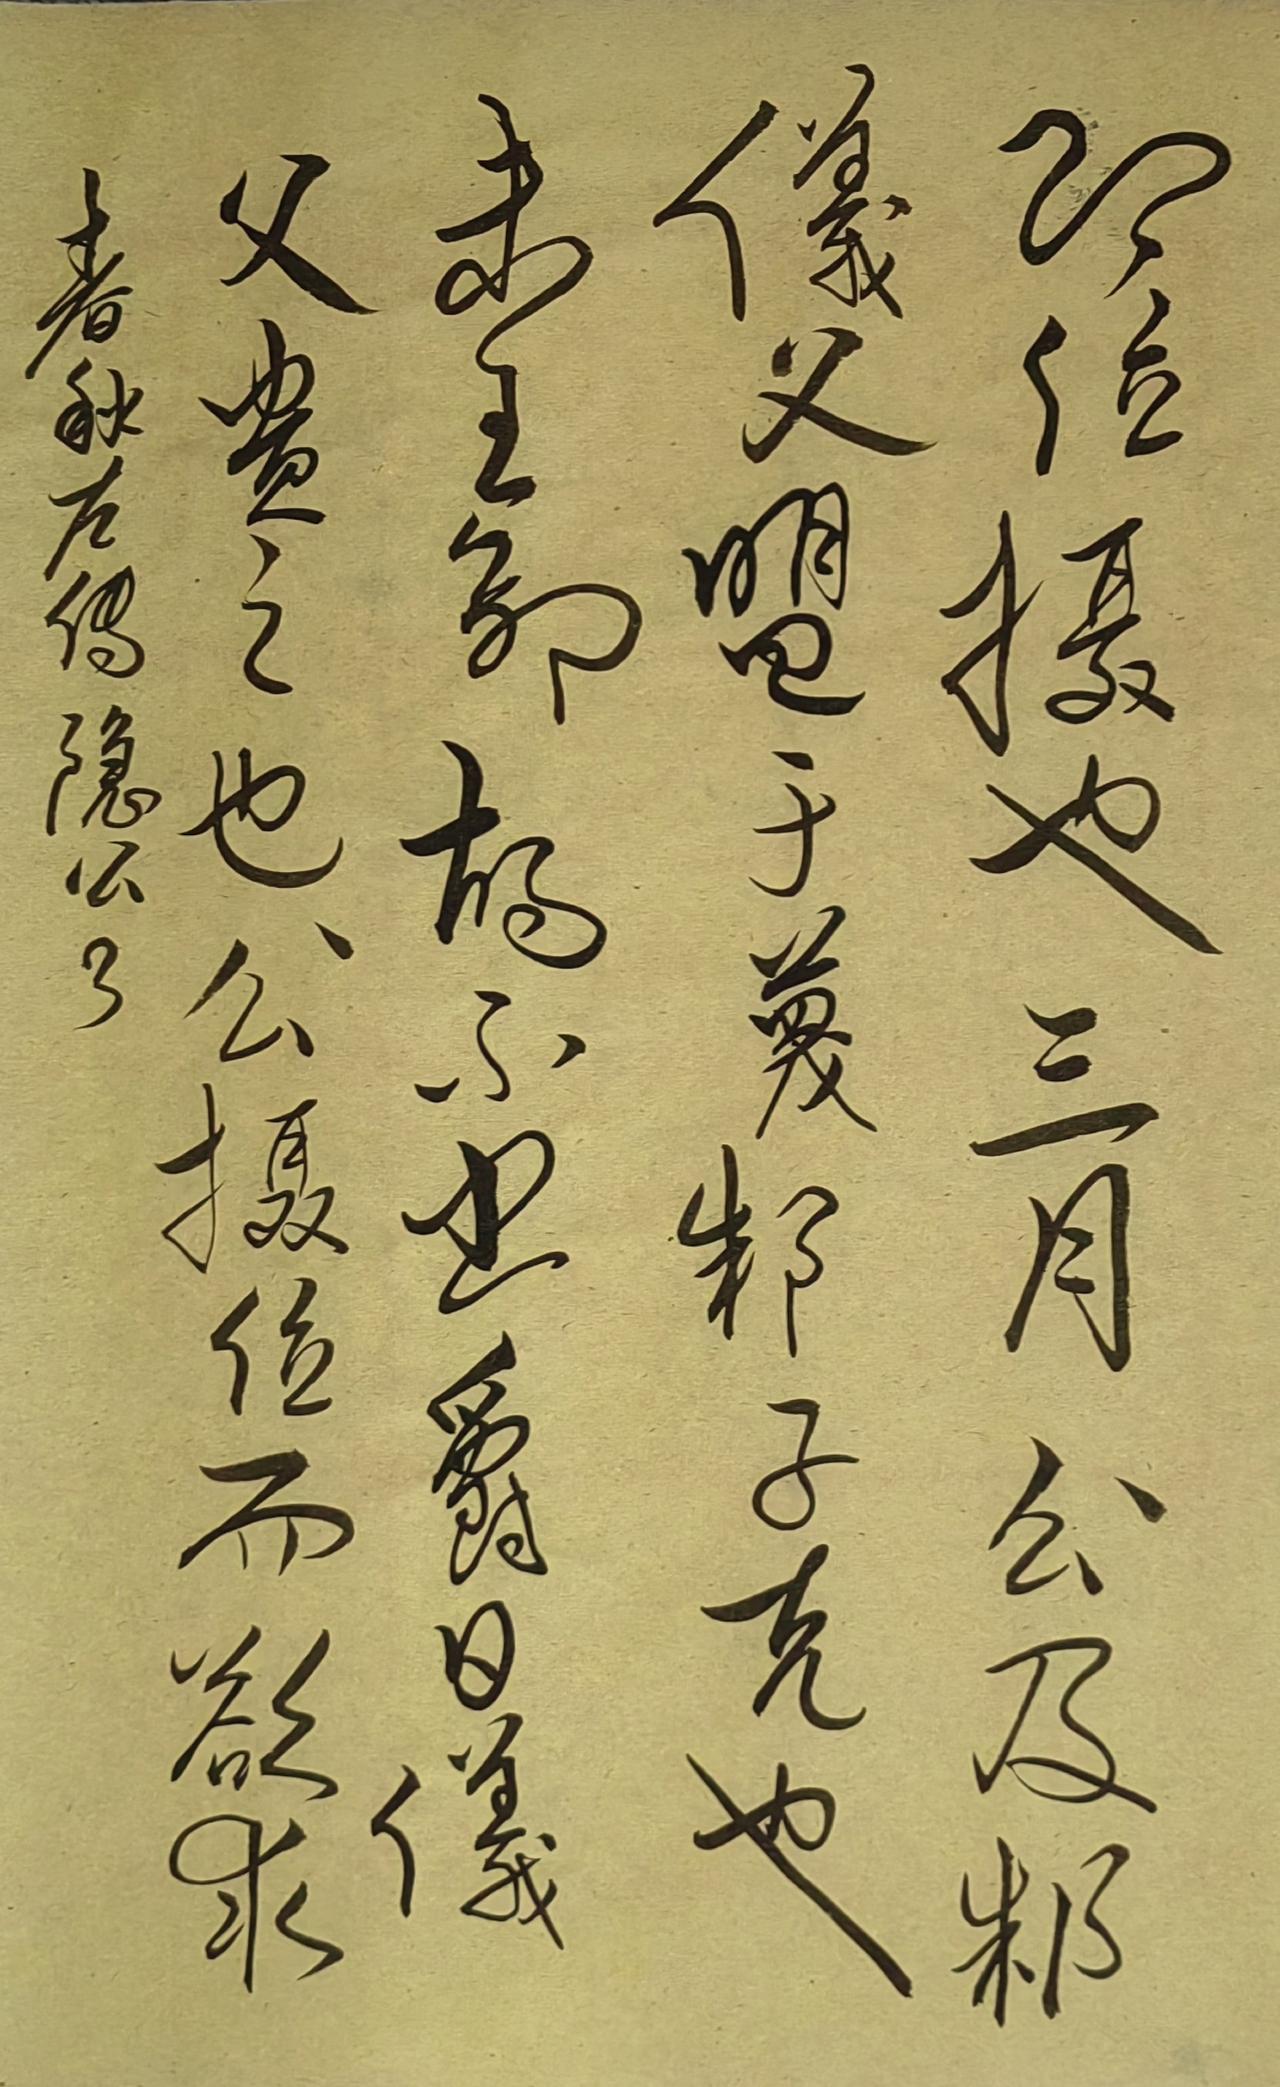 即位摄也三月公及邾
儀父盟于蔑邾子克也
未王命故不書爵曰儀
父貴之也公摄位而欲求
春秋左傳隐公